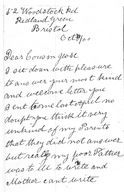 52 Woodstock Rd
Redland Green
Bristol
Oct
Dear Cousin
I sit down with pleasure
to answer your most kind
and welcome letter you
sent some last April no
doubt you think it very
unkind of my Parents
that they did not answer
but really my poor Father
was to ill to write and
Mother cant write